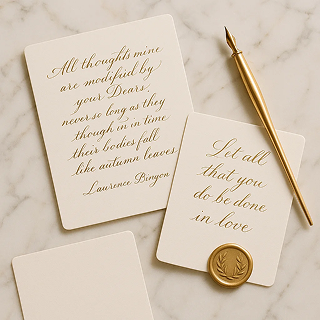 All thoughts mine
are modified by
your Dears,
never so long as they
though in in time
their bodies fall
like autumn leaves.
-Laurence Binyon
Let all
that you
do be done
in love